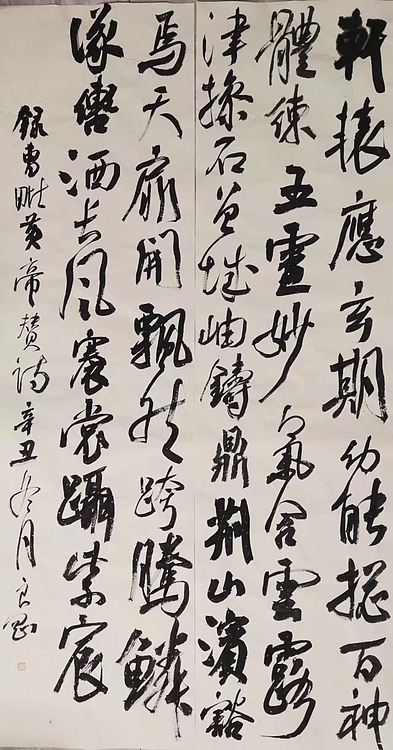 軒轅應玄期幼能摠百神
體練五靈妙氣含雲露
津摻石曾城岫鑄鼎荊山濱豁
焉天扉開飄然跨騰鱗
儀轡洒長風褰裳躡紫宸
録曹毗黄帝赞詩辛丑冬月良